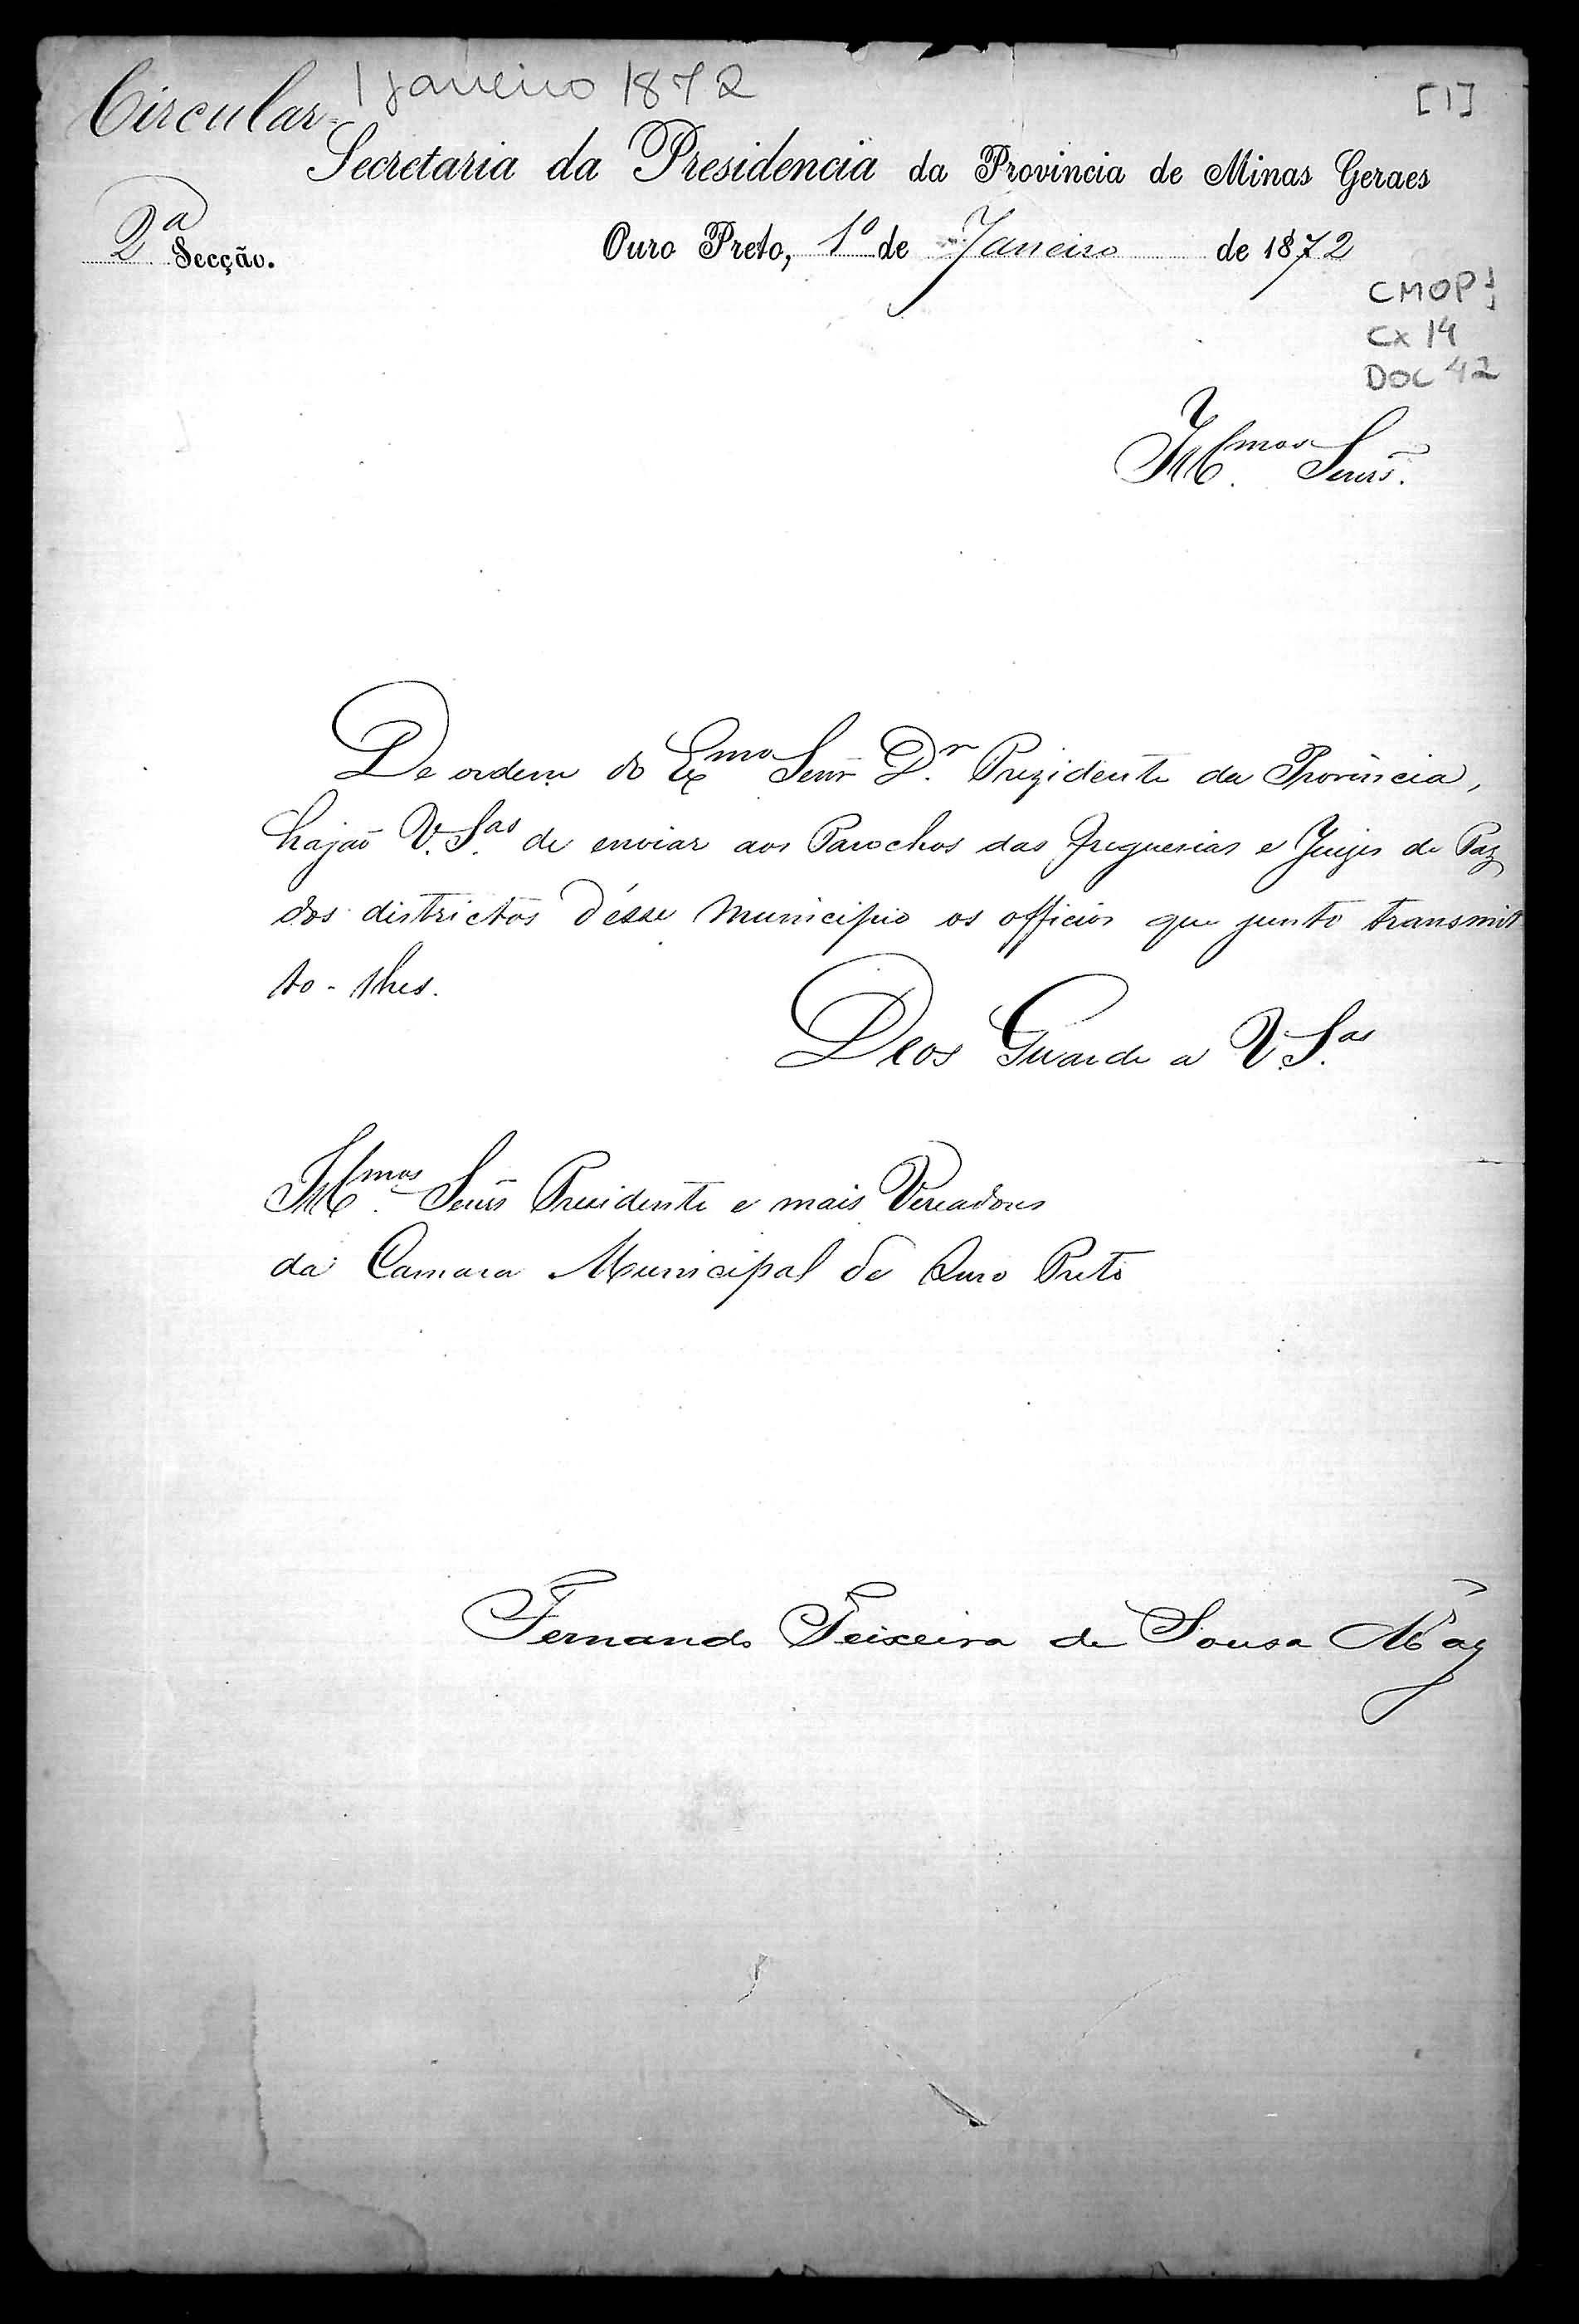 1 janeiro 1872
[1]
Circular
Secretaria da Presidencia da Provincia de Minas Geraes
2ª Secção.
Ouro Preto, 1º de Janeiro de 1872
CMOP
Cx 14
DOC 42
Illmos Senrs.
De ordem do Exmo Senr Dr. Prezidente da Provincia,
hajão V. Sas de enviar aos Parochos das Freguesias e Juizes de Paz
dos districtos d'ésse municipio os officios que junto transmit
to-lhes.
Deos Guarde a V. Sas
Illmos Senrs Presidente e mais Vereadores
da Camara Municipal de Ouro Preto
Fernando Teixeira de Sousa